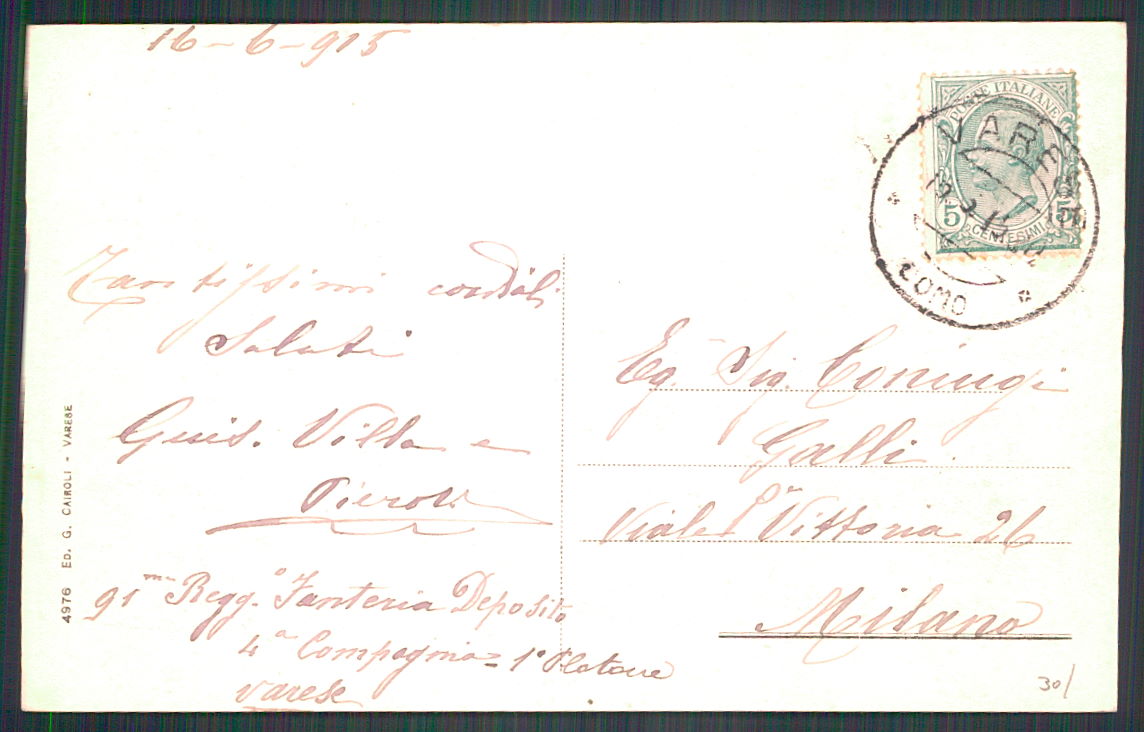 16-6-915
POSTE ITALIANE
5 5
CENTESIMI
VARESE
COMO
Tantissimi cordiali
Saluti
Guis. Villa e
91mo Regg.o Fanteria Deposito
4a Compagnia = 1o Plotone
Varese
Eg. Sig. Coniugi
Galli
Viale Pa Vittoria 26
Milano
4976 ED. G. CAIROLI - VARESE
30/